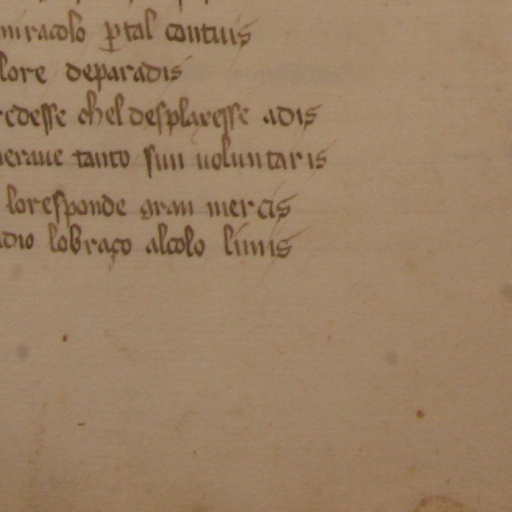 miracolo p tal contuis
lore deparadis
redesse chel desplaxesse adis
uerave tanto sun uoluntaris
loresponde gran mercis
adio lobraço alcolo limis